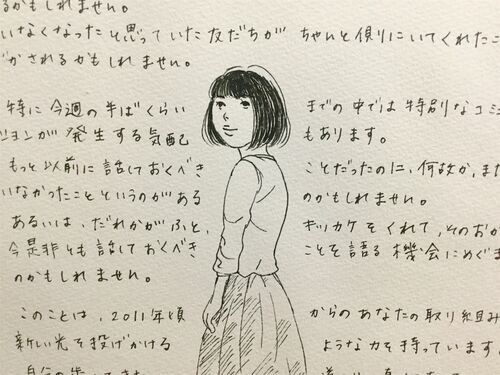 るかもしれません。
いなくなったと思っていた友だちが ちゃんと側りにいてくれたこ
がされるかもしれません。
特に今週の半ばくらい までの中では特別なコミ
ションが発生する気配 もあります。
もっと以前に話しておくべき ことだったのに、何故か、また
いなかったことというのがある のかもしれません。
あるいは、だれかがふと、 キッカケをくれて、そのおか
今是非とも話しておくべき ことを語る機会にめぐま
のかもしれません。
このことは、2011年頃 からのあなたの取り組み
新しい光を投げかける ような力を持っています。